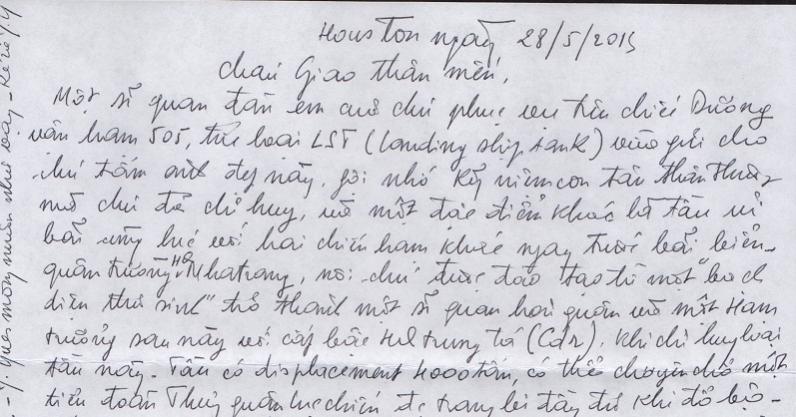 Houston ngày 28/5/2015
cháu Giao thân mến,
Một sĩ quan đàn em của chú phục vụ trên chiếc Dương
vận hạm 505, tức loại LST (landing ship tank) vừa gửi cho
chú tấm ảnh đẹp này, gợi nhớ kỷ niệm con tàu thân thương
mà chú đã chỉ huy, và một đặc điểm khác là tàu ủi
bãi cùng lúc với hai chiến hạm khác ngay trước bãi biển
quân trường HQ Nhatrang, nơi chú được đào tạo từ một "bạch
diện thư sinh" trở thành một sĩ quan hải quân và một Hạm
trưởng sau này với cấp bậc HQ trung tá (Cdr), khi chỉ huy loại
tàu này. Tàu có displacement 4000 tấn, có thể chuyên chở một
tiểu đoàn Thủy quân lục chiến được trang bị đầy đủ khi đổ bộ -
muốn như vậy -